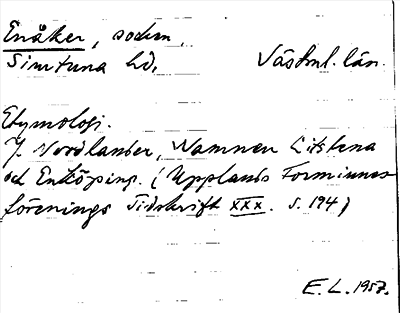 Enåker, socken,
Simtuna hd, Västml. län.
Etymologi.
J. Nordlander, Namnen Litslena
och Enköping. (Upplands Fornminnes-
förenings Tidskrift XXX. s. 194)
E.L. 1957.